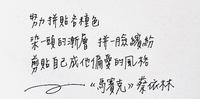 努力拼貼各種色
染一頭的漸層 拼一臉繽紛
剪貼自己成他偏愛的風格
——《馬賽克》蔡依林